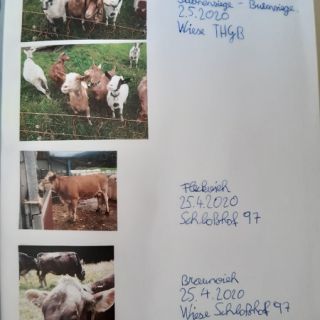 2.5.2020
Wiese THGB
Fleckvieh
25.4.2020
Schloßhof 97
Braunvieh
25.4.2020
Wiese Schloßhof 97